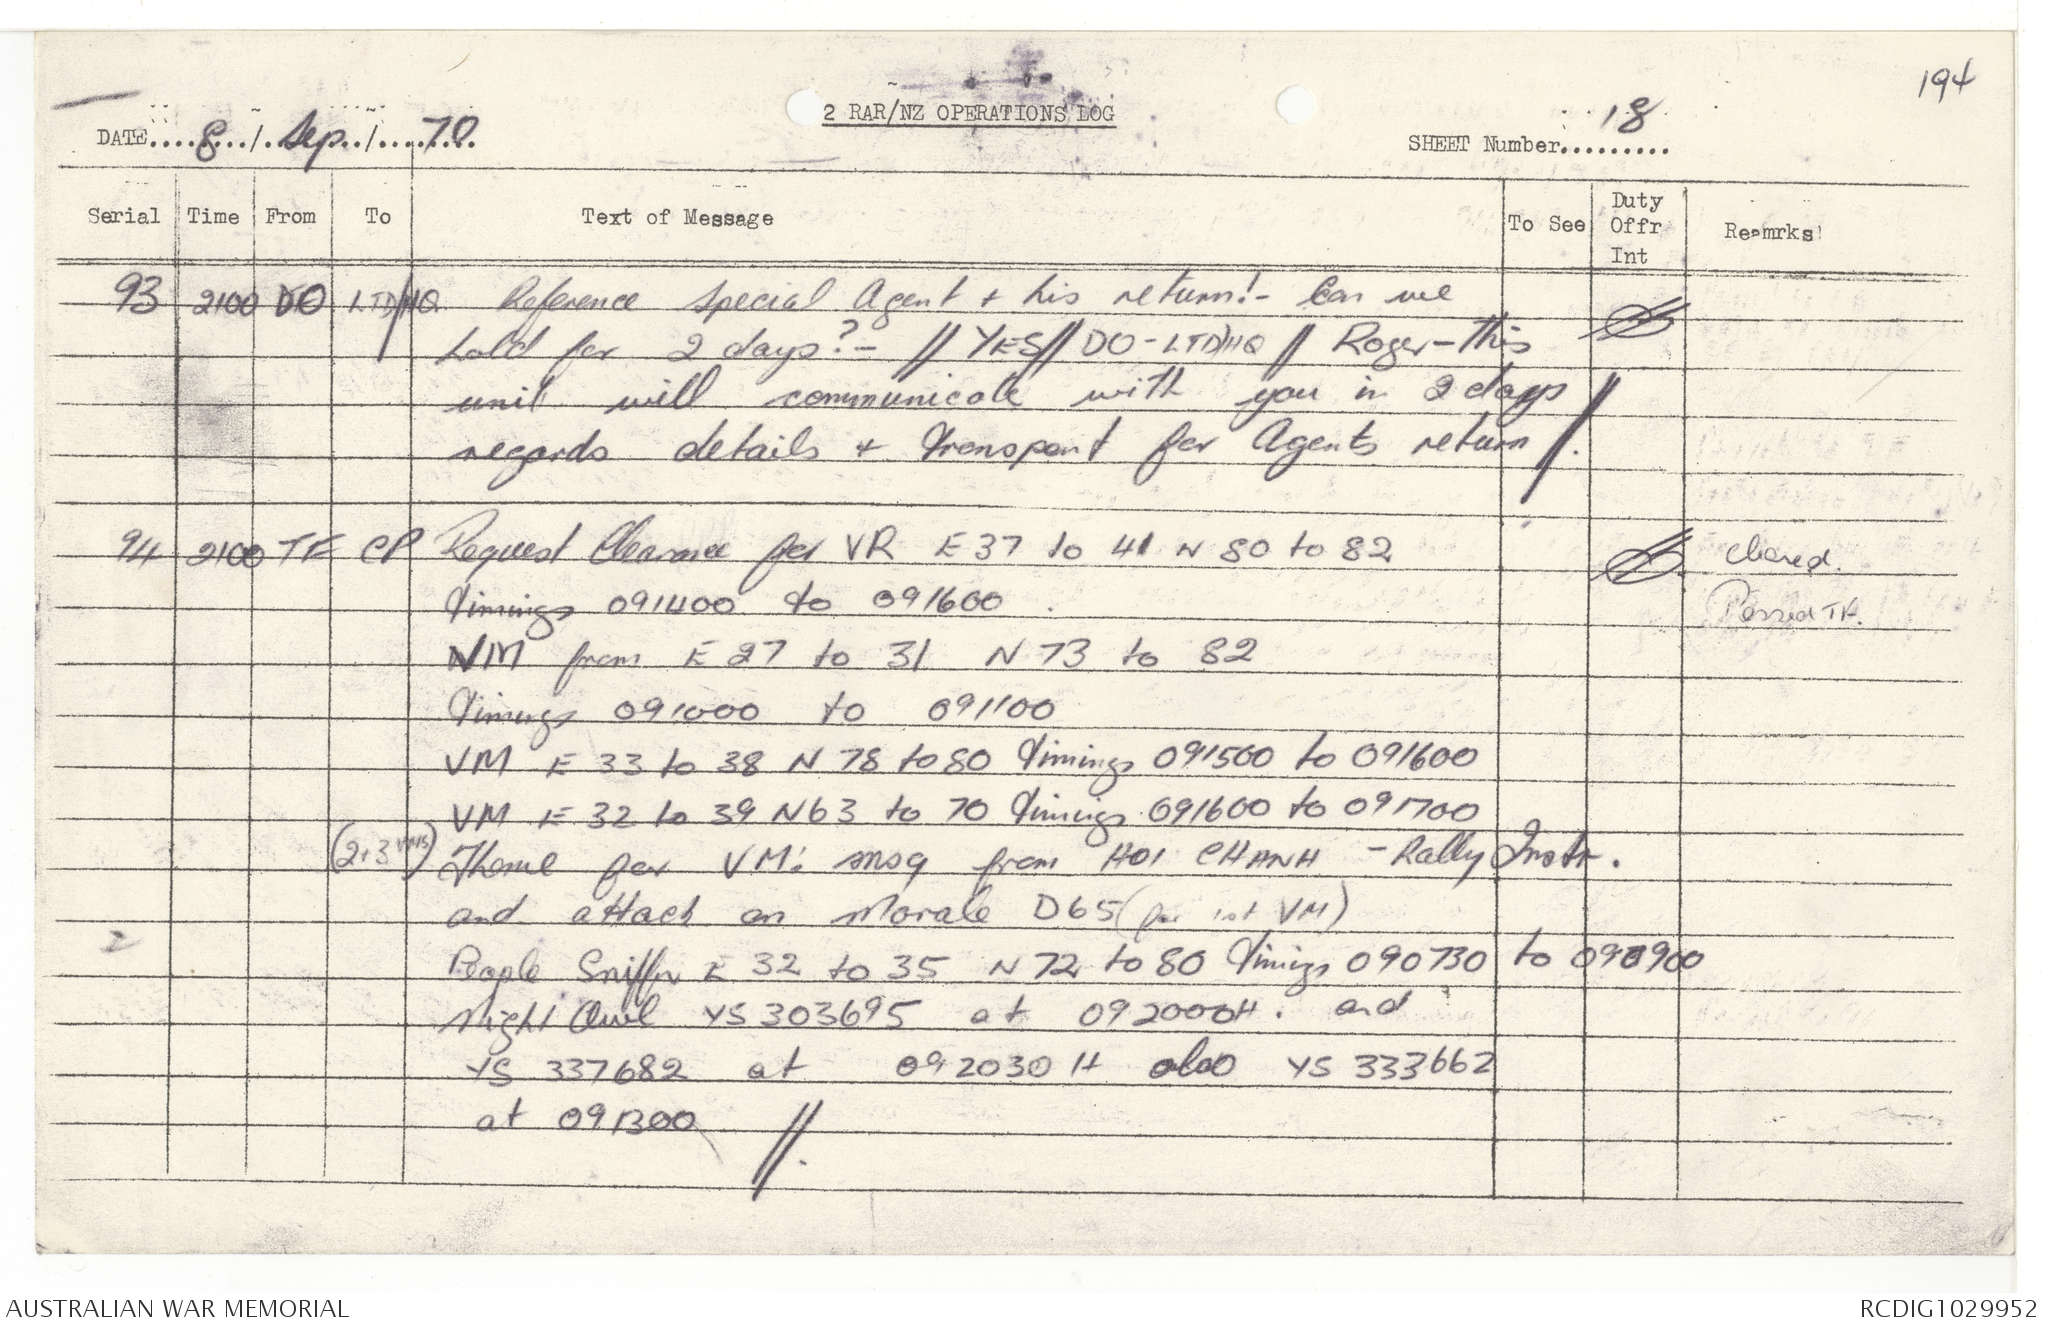 194
2 RAR/NZ OPERATIONS LOG
DATE....8.../.Sep../....70.
SHEET Number...18......
Serial Time From To Text of Message To See Duty Offr Int Reamrks
93 2100 DO LTD/HQ Reference Special Agent + his return!- Can we
hold for 2 days?- // YES// DO-LTD/HQ // Roger-this
unit will communicate with you in 2 days
regards details + transport for Agents return //.
94 2100 TF CP Request Clearance for VR E 37 to 41 N 80 to 82 Cleared.
timings 091400 to 091600. Passed TF.
VM from E 27 to 31 N 73 to 82
timings 091000 to 091100
VM E 33 to 38 N 78 to 80 timings 091500 to 091600
VM E 32 to 39 N63 to 70 timings 091600 to 091700
(2+3 VMS) Theme for VM: msg from HOI CHANH - Rally Instr.
and attack on Morale D65 (for 1st VM)
People Sniffer E 32 to 35 N 72 to 80 timings 090730 to 090900
Night Owl YS 303695 at 092000H. and
YS 337682 at 092030H also YS 333662
at 091300 //.
AUSTRALIAN WAR MEMORIAL
RCDIG1029952